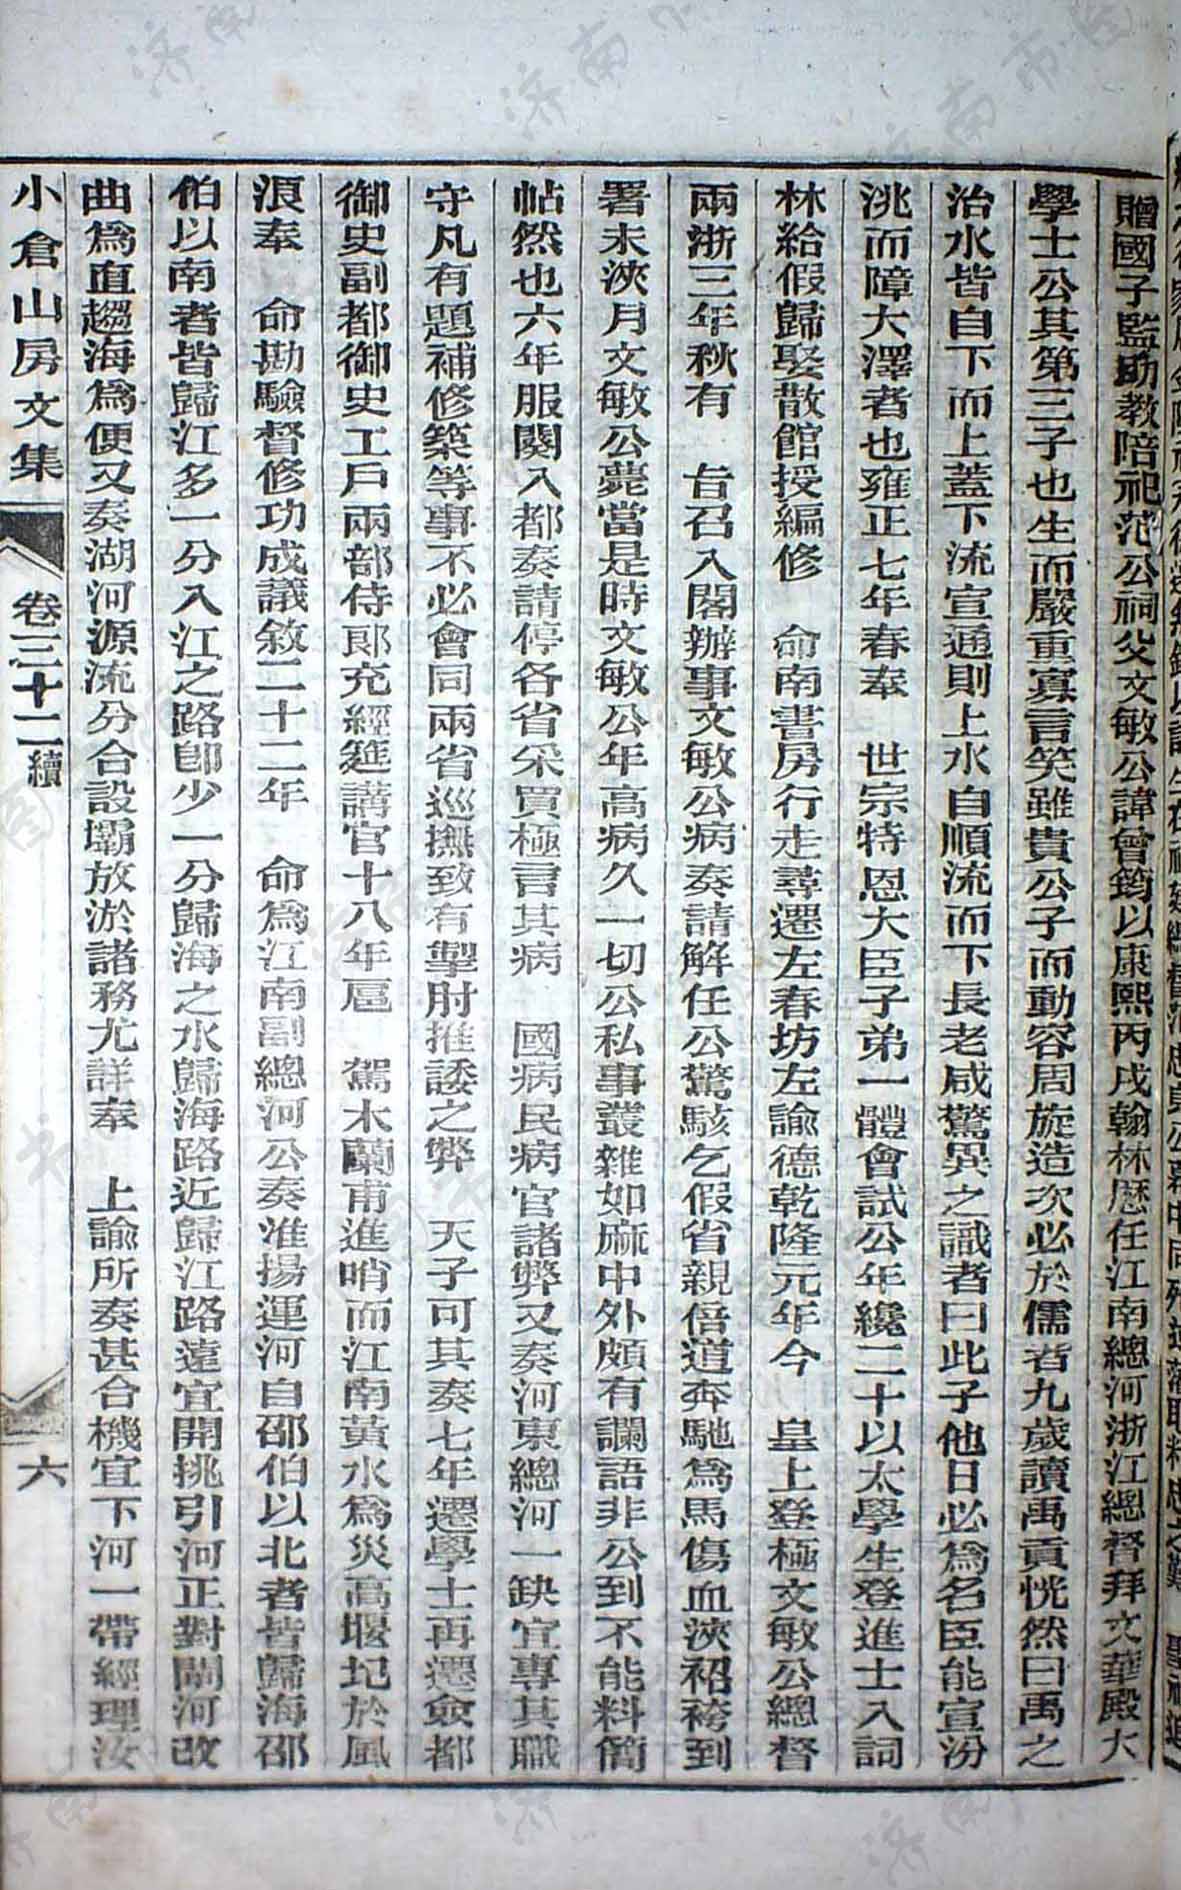 贈國子監助教陪祀范公祠父文敏公諱曾筠以康熙丙戌翰林歷任江南總河浙江總督拜文華殿大
學士公其第三子也生而嚴重寡言笑雖貴公子而動容周旋造次必於儒者九歲讀禹貢恍然曰禹之
治水皆自下而上蓋下流宣通則上水自順流而下長老咸驚異之識者曰此子他日必為名臣能宣汾
洮而障大澤者也雍正七年春奉 世宗特恩大臣子弟一體會試公年纔二十以太學生登進士入詞
林給假歸娶散館授編修 命南書房行走尋遷左春坊左諭德乾隆元年今 皇上登極文敏公總督
兩浙三年秋有 旨召入閣辦事文敏公病奏請解任公驚駭乞假省親倍道奔馳為馬傷血浹袑袴到
署未浹月文敏公薨當是時文敏公年高病久一切公私事叢雜如麻中外頗有讕語非公到不能料簡
帖然也六年服闋入都奏請停各省采買極言其病 國病民病官諸弊又奏河東總河一缺宜專其職
守凡有題補修築等事不必會同兩省巡撫致有掣肘推諉之弊 天子可其奏七年遷學士再遷僉都
御史副都御史工戶兩部侍郎充經筵講官十八年扈 駕木蘭甫進哨而江南黃水為災高堰圮於風
浪奉 命勘驗督修功成議敘二十二年 命為江南副總河公奏淮揚運河自邵伯以北者皆歸海邵
伯以南者皆歸江多一分入江之路卽少一分歸海之水歸海路近歸江路遠宜開挑引河正對閘河改
曲為直趨海為便又奏湖河源流分合設壩放淤諸務尤詳奉 上諭所奏甚合機宜下河一帶經理汝
小倉山房文集 卷三十二續 六